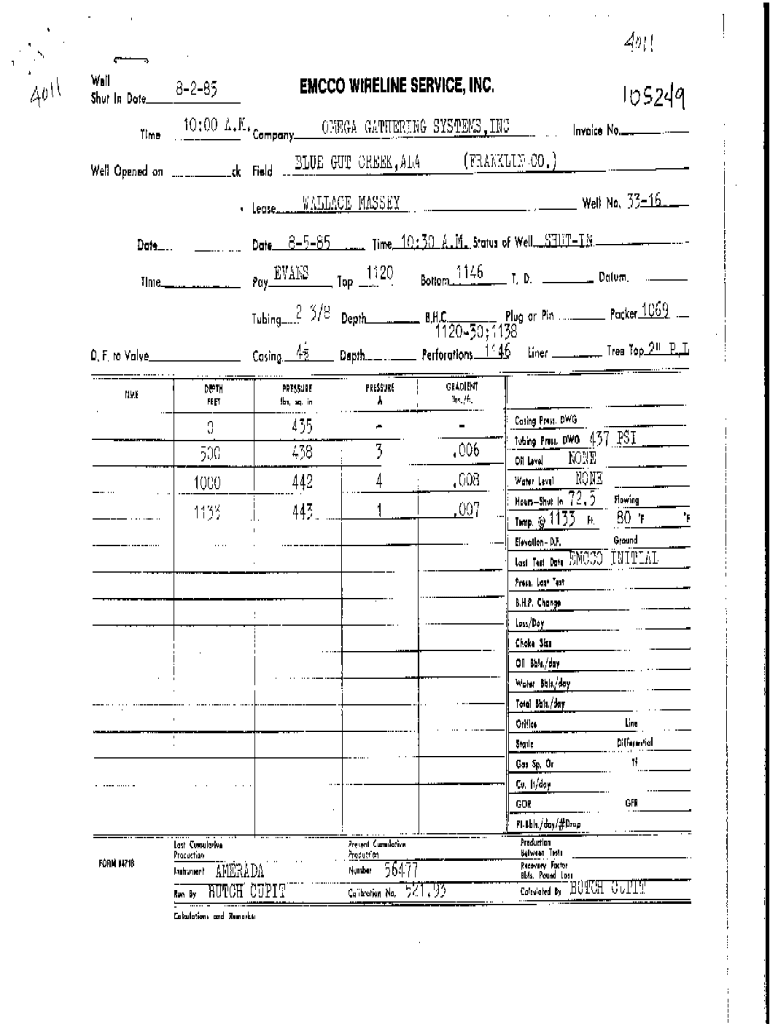 4011
4011
Well
Shut In Date 8-2-85
EMCCO WIRELINE SERVICE, INC.
105249
Time 10:00 A.M. Company OMEGA GATHERING SYSTEMS,INC Invoice No.
Well Opened on ck Field BLUE GUT CREEK,ALA (FRANKLIN CO.)
Lease WALLACE MASSEY Well No. 33-16
Date Date 8-5-85 Time 10:30 A.M. Status of Well SHUT-IN
Time Pay EVANS Top 1120 Bottom 1146 T. D. Datum
Tubing 2 3/8 Depth B.H.C. Plug or Pin Packer 1069
1120-30;1138
D. F. to Valve Casing 4½ Depth Perforations 1146 Liner Tree Top 2"
TIME DEPTH FEET PRESSURE lbs. sq. in PRESSURE Δ GRADIENT lbs./ft.
0 435 - -
500 438 3 .006
1000 442 4 .008
1133 443 1 .007
Casing Press. DWG
Tubing Press. DWG 437 PSI
Oil Level NONE
Water Level NONE
Hours-Shut in 72.5 Flowing
Temp. @ 1133 Ft. 80 °F °F
Elevation-D.F. Ground
Last Test Date EMCCO INITIAL
Press. Last Test
B.H.P. Change
Loss/Day
Choke Size
Oil Bbls./day
Water Bbls./day
Total Bbls./day
Orifice Line
Static Differential
Gas Sp. Gr
Cu. ft/day
GOR GFR
PI-Bbls./day/#Drop
FORM #4718
Last Cumulative Production
Present Cumulative Production
Production Between Tests
Instrument AMERADA Number 56477
Recovery Factor
Bbls. Pound Loss
Run By BUTCH CUPIT Calibration No. 521.93 Calculated By BUTCH CUPIT
Calculations and Remarks